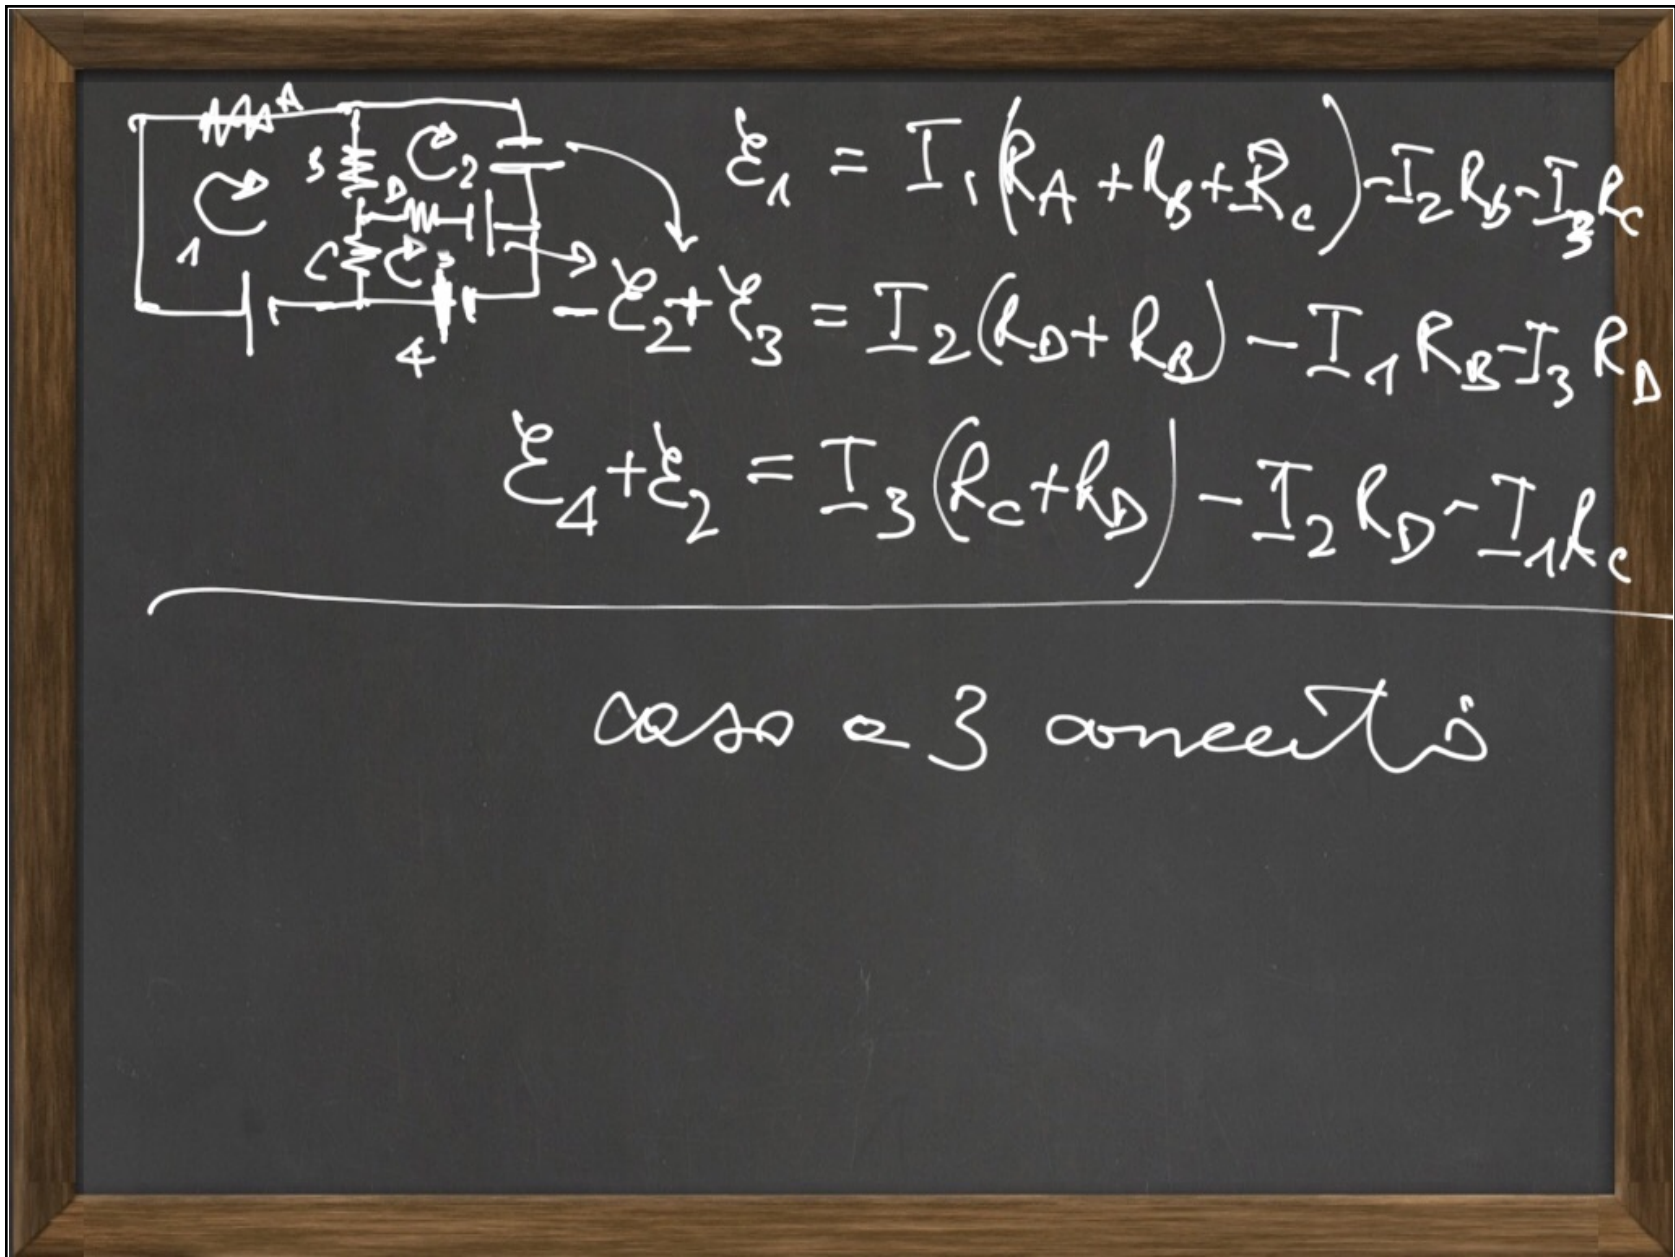 A
B
2
D
1
C
3
4
ℰ₁ = I₁(R_A + R_B + R_C) - I₂R_B - I₃R_C
-ℰ₂ + ℰ₃ = I₂(R_D + R_B) - I₁R_B - I₃R_D
ℰ₄ + ℰ₂ = I₃(R_C + R_D) - I₂R_D - I₁R_C
caso a 3